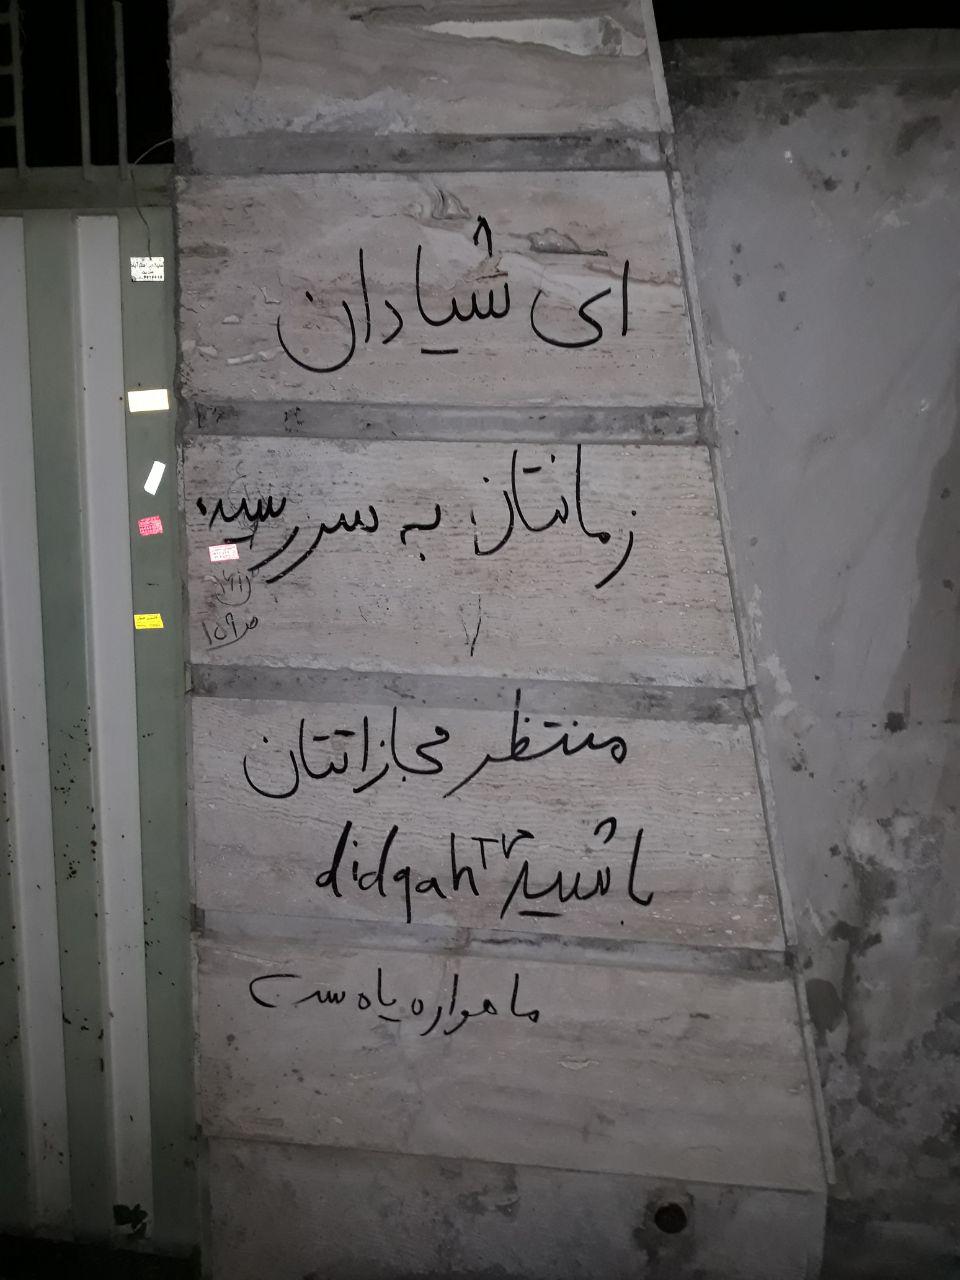 ای شیادان
زمانتان به سر رسیده
منتظر مجازاتتان
باشید didgah TV
ماهواره یاه ست